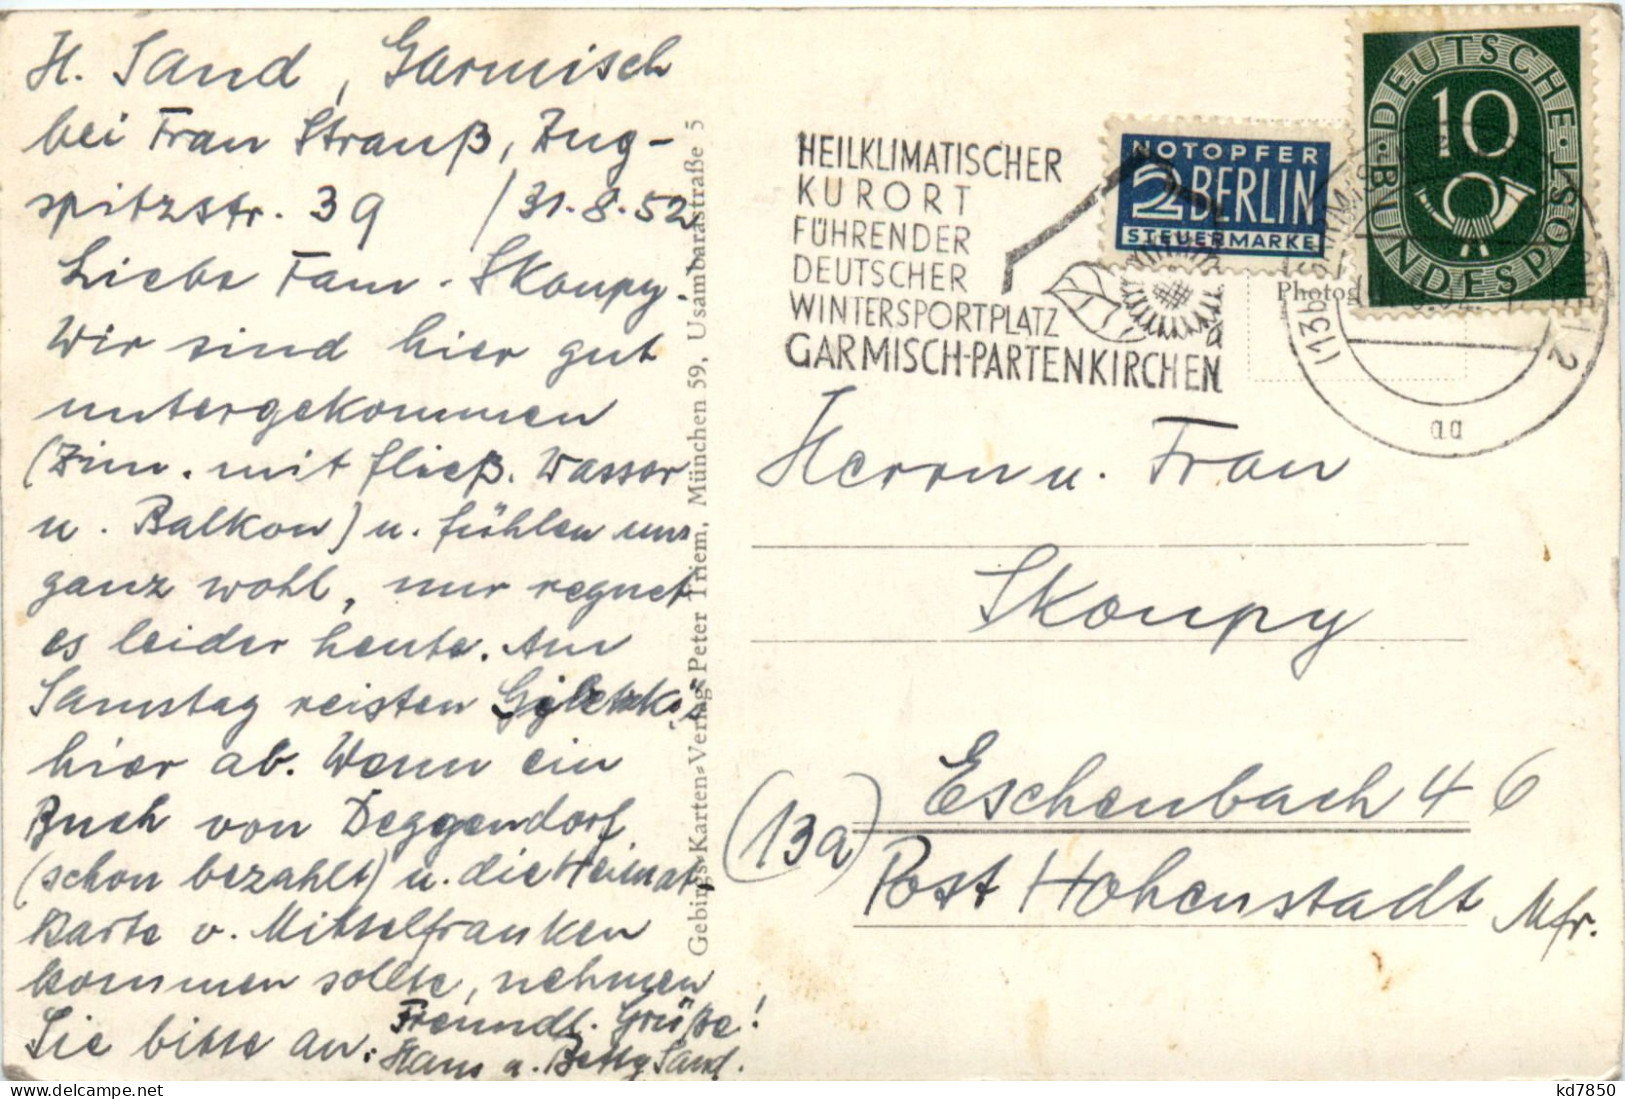 H. Sand, Garmisch
bei Frau Strauß, Zug-
spitzstr. 39 / 31.8.52
Liebe Fam. Skoupy.
Wir sind hier gut
untergekommen
(Zim. mit fließ. Wasser
u. Balkon) u. fühlen uns
ganz wohl, nur regnet
es leider heute. Am
Samstag reisten
hier ab. Wenn ein
Buch von Deggendorf
(schon bezahlt) u. die Heimat-
karte v. Mittelfranken
kommen sollte, nehmen
Sie bitte an.
Freundl. Grüße!
Hans u. Betty Sand.
Gebirgs-Karten-Verlag Peter Triem, München 59, Usambarastraße 5
HEILKLIMATISCHER
KURORT
FÜHRENDER
DEUTSCHER
WINTERSPORTPLATZ
GARMISCH-PARTENKIRCHEN
NOTOPFER
2 BERLIN
STEUERMARKE
DEUTSCHE BUNDESPOST
10
Photog
aa
Herrn u. Frau
Skoupy
Eschenbach 46
(13a)
Post Hohenstadt Mfr.
kd7850